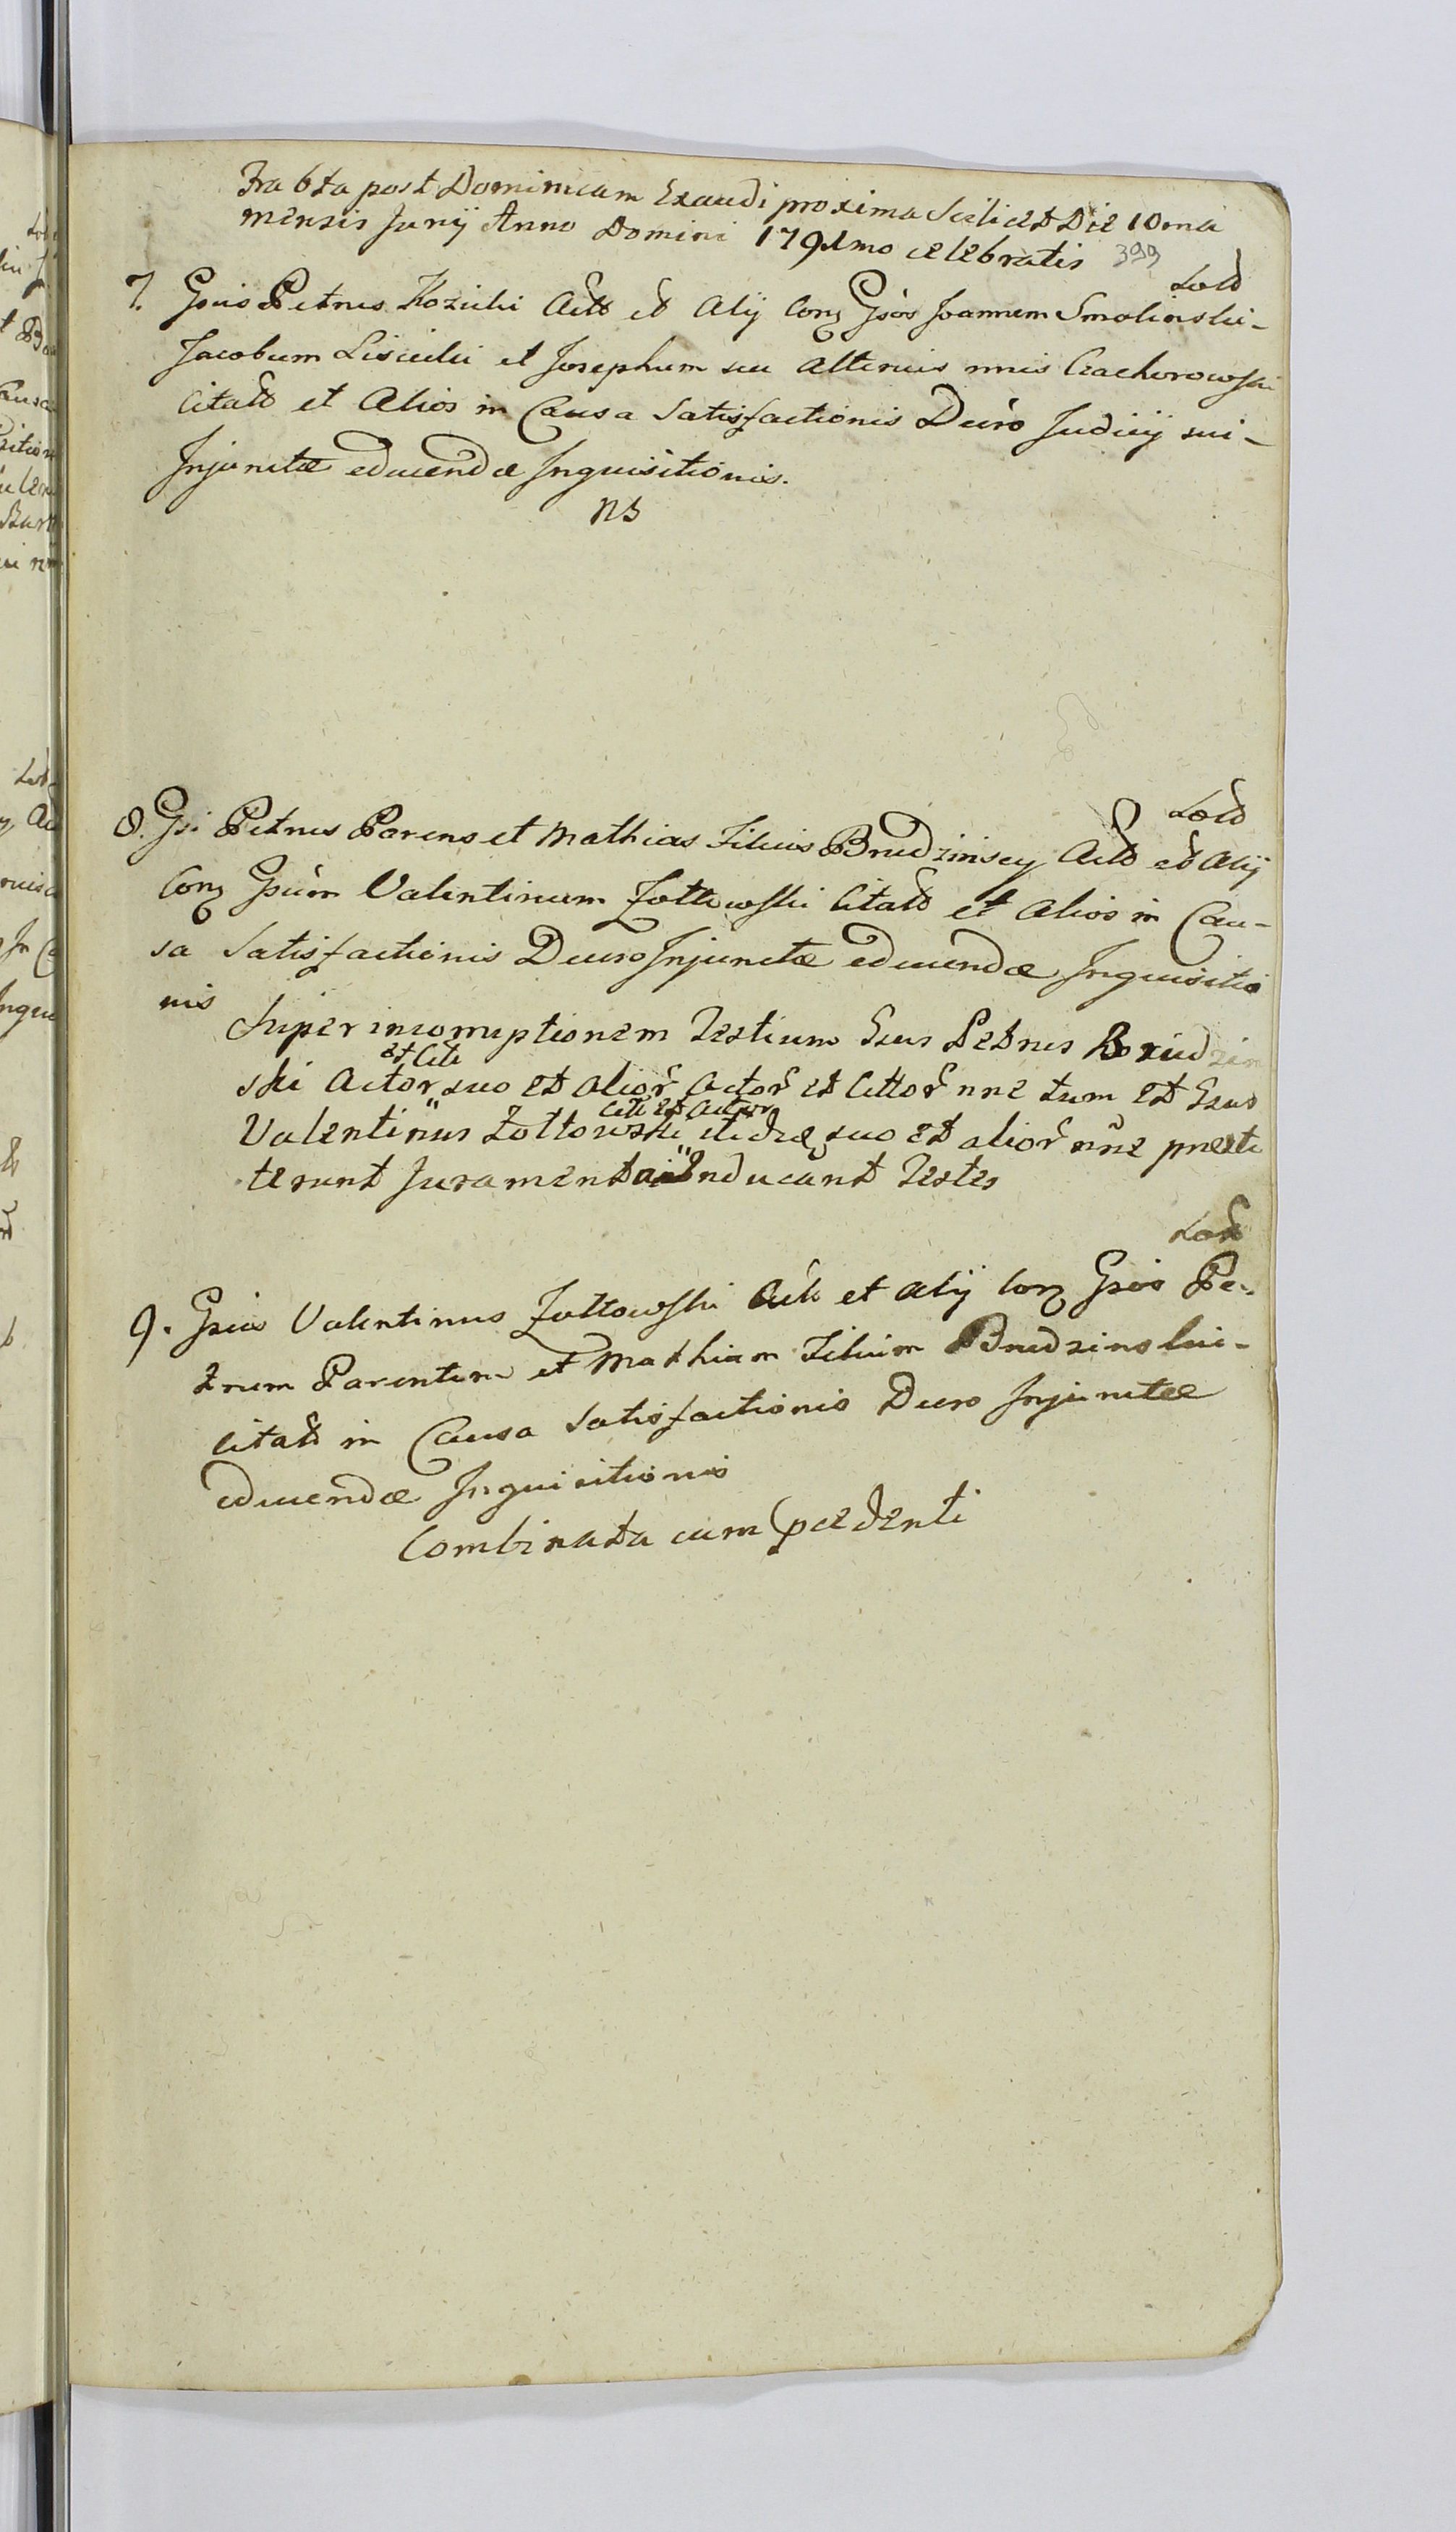 Fra 6ta post Dominicam Exaudi proxima Scilicet Die 10ma
mensis Junij Anno Domini 1791mo celebratis 399
Lod
7. Gsus Petrus Kozicki Act et Alij Con Gsos Joannem Smolinski-
Jacobum Lisiecki et Josephum seu alterius nnis Czachorowski
Citat et Alios in Causa Satisfactionis Decro Judicij sui-
Injunctæ educendæ Inquisitionis.
NS
Lod
8. Gsi Petrus Parens et Mathias Filius Brudzinscy Act et Alij
Con Gsum Valentinum Zołtowski Citat et Alios in Cau-
sa Satisfactionis Decro Injunctæ educendæ Inquisitio
nis
Super incorruptionem Testium Gsus Petrus Brudzin
et Citt
ski Actor suo et alior Actor et Cittor nne tum et Gsus
Citt et Actor
Valentinus Zołtowski suo et alior nne presti
terunt Juramenta Inducant Testes
Lod
9. Gsus Valentinus Zołtowski Act et Alij Con Gsos Pe-
trum Parentem et Mathiam Filium Brudzinski-
Citat in Causa Satisfactionis Decro Injunctæ
educendæ Inquisitionis
Combinata cum pcedenti